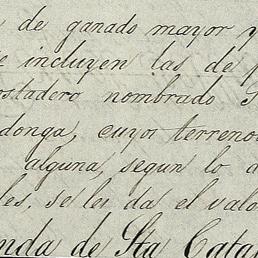 de ganado mayor y
incluyen las de
ostadero nombrado
donga, cuyos terrenos
alguna, segun lo a
les, se les da el valo
nda de Sta Cata